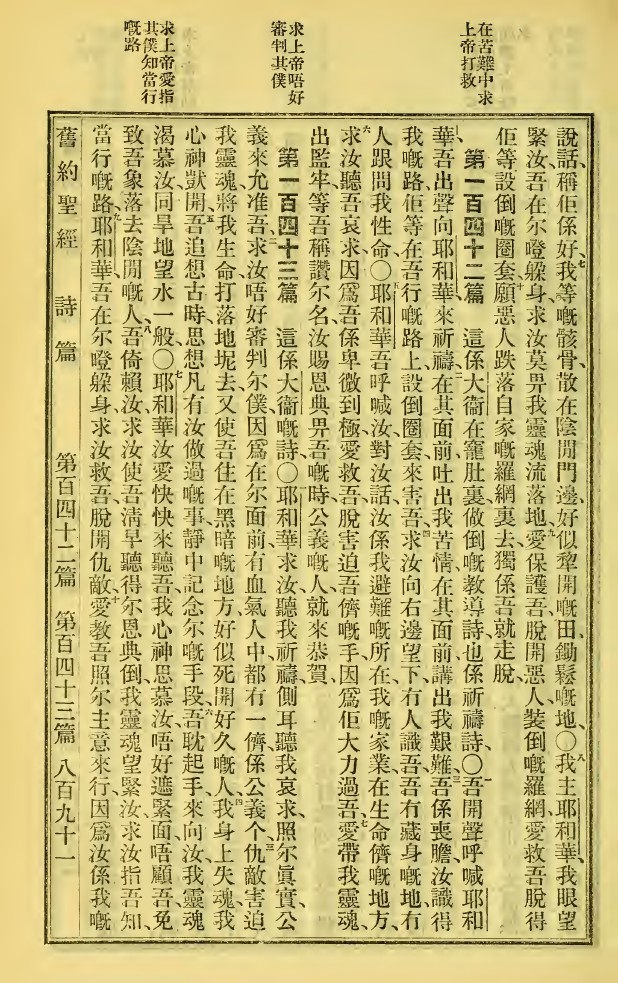 在苦難中求
上帝打救
求上帝唔好
審判其僕
求上帝愛指
其僕知當行
嘅路
說話、稱佢係好、七我等嘅骸骨、散在陰間門邊、好似犂開嘅田、鋤鬆嘅地、〇八我主耶和華、我眼望
緊汝、吾在尔嶝躲身、求汝莫畀我靈魂流落地、九愛保護吾脫開惡人裝倒嘅羅網、愛救吾脫得
佢等設倒嘅圈套、十願惡人跌落自家嘅羅網裏去、獨係吾就走脫、
第一百四十二篇 這係大衞在窿肚裏做倒嘅教導詩、也係祈禱詩、〇一吾開聲呼喊耶和
華、吾出聲向耶和華來祈禱、二在其面前、吐出我苦情、在其面前、講出我艱難、三吾係喪膽、汝識得
我嘅路、佢等在吾行嘅路上、設倒圈套來害吾、四求汝向右邊望下、冇人識吾、吾冇藏身嘅地、冇
人跟問我性命、〇五耶和華、吾呼喊汝、對汝話、汝係我避難嘅所在、我嘅家業、在生命儕嘅地方、
六求汝聽吾哀求、因爲吾係卑微到極、愛救吾脫害迫吾儕嘅手、因爲佢大力過吾、七愛帶我靈魂、
出監牢、等吾稱讚尔名、汝賜恩典畀吾嘅時、公義嘅人、就來恭賀、
第一百四十三篇 這係大衞嘅詩、〇一耶和華、求汝聽我祈禱、側耳聽我哀求、照尔眞實公
義來允准吾、二求汝唔好審判尔僕、因爲在尔面前、有血氣人中、都冇一儕係公義个、三仇敵害迫
我靈魂、將我生命打落地坭去、又使吾住在黑暗嘅地方、好似死開好久嘅人、四我身上失魂、我
心神獃開、五吾追想古時、思想凡有汝做過嘅事、靜中記念尔嘅手段、六吾耽起手來向汝、我靈魂
渴慕汝、同旱地望水一般、〇七耶和華、汝愛快快來聽吾、我心神思慕汝、唔好遮緊面唔顧吾、免
致吾象落去陰間嘅人、八吾倚賴汝、求汝使吾淸早聽得尔恩典倒、我靈魂望緊汝、求汝指吾知、
當行嘅路、九耶和華、吾在尔嶝躲身、求汝救吾脫開仇敵、十愛教吾照尔主意來行、因爲汝係我嘅
舊約聖經 詩篇 第百四十二篇 第百四十三篇 八百九十一